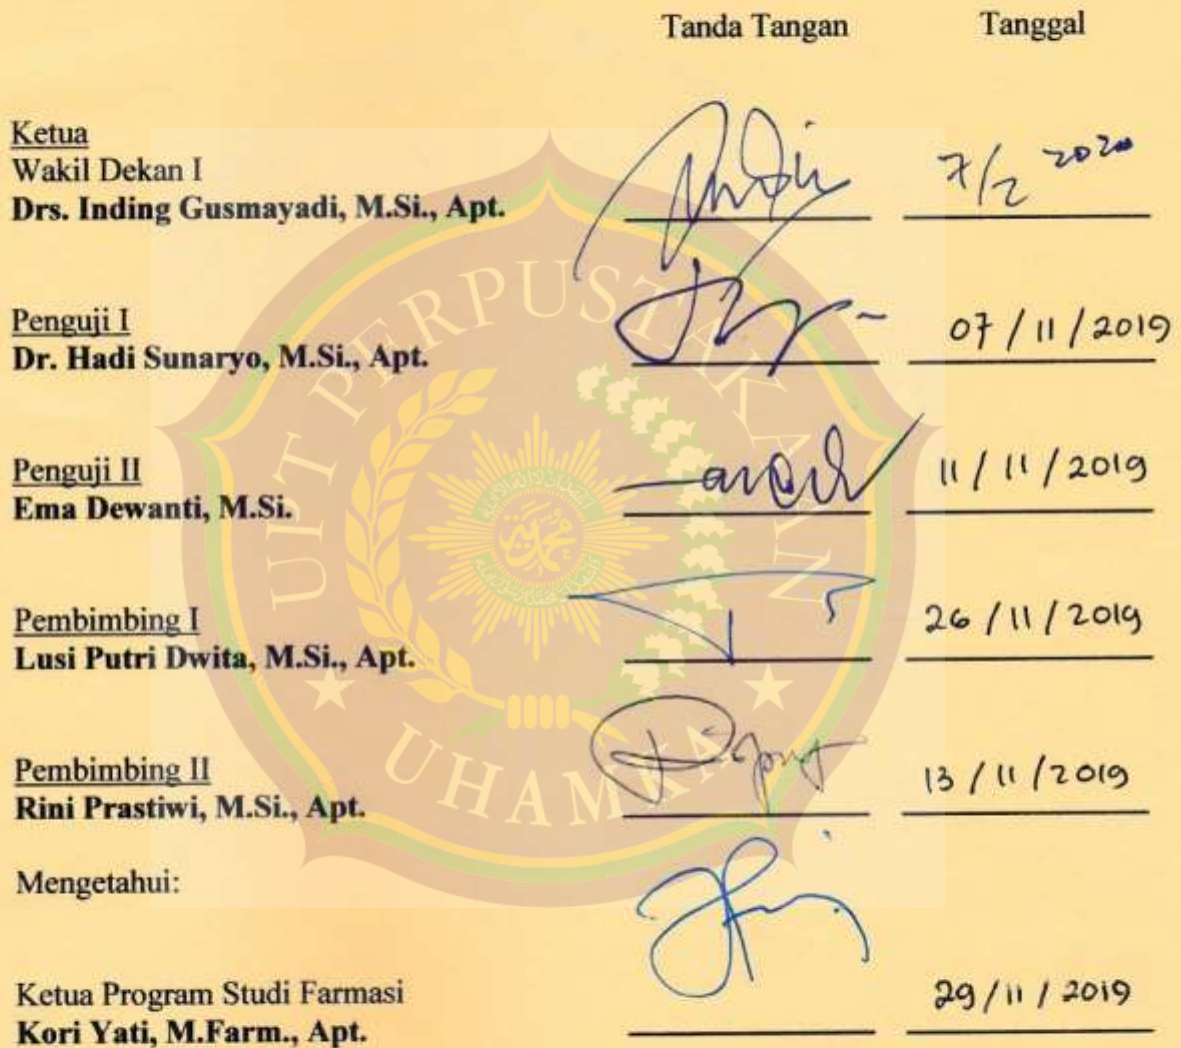 Tanda Tangan Tanggal
Ketua
Wakil Dekan I
Drs. Inding Gusmayadi, M.Si., Apt. 7/2 2020
Penguji I
Dr. Hadi Sunaryo, M.Si., Apt. 07/11/2019
Penguji II
Ema Dewanti, M.Si. 11/11/2019
Pembimbing I
Lusi Putri Dwita, M.Si., Apt. 26/11/2019
Pembimbing II
Rini Prastiwi, M.Si., Apt. 13/11/2019
Mengetahui:
Ketua Program Studi Farmasi
Kori Yati, M.Farm., Apt. 29/11/2019
UPT PERPUSTAKAAN
UHAMKA